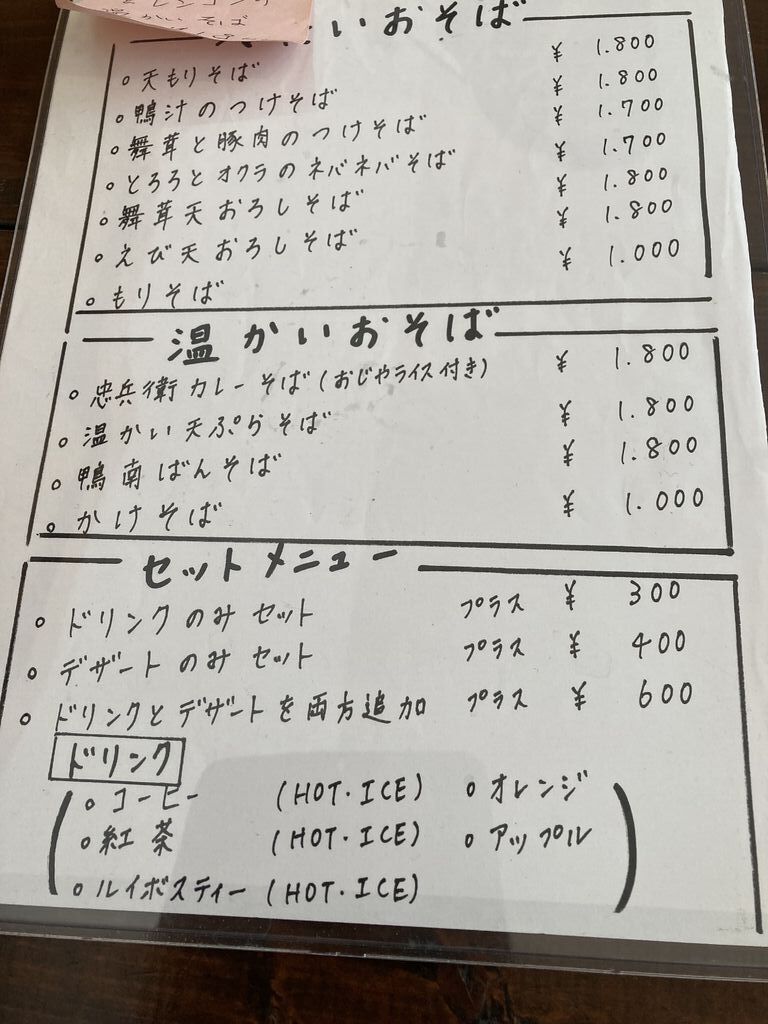 いおそば
。天もりそば ¥ 1.800
。鴨汁のつけそば ¥ 1.800
。舞茸と豚肉のつけそば ¥ 1.700
。とろろとオクラのネバネバそば ¥ 1.700
。舞茸天おろしそば ¥ 1.800
。えび天おろしそば ¥ 1.800
。もりそば ¥ 1.000
温かいおそば
。忠兵衛カレーそば(おじやライス付き) ¥ 1.800
。温かい天ぷらそば ¥ 1.800
。鴨南ばんそば ¥ 1.800
。かけそば ¥ 1.000
セットメニュー
。ドリンクのみセット プラス ¥ 300
。デザートのみセット プラス ¥ 400
。ドリンクとデザートを両方追加 プラス ¥ 600
ドリンク
。コーヒー (HOT・ICE) 。オレンジ
。紅茶 (HOT・ICE) 。アップル
。ルイボスティー (HOT・ICE)